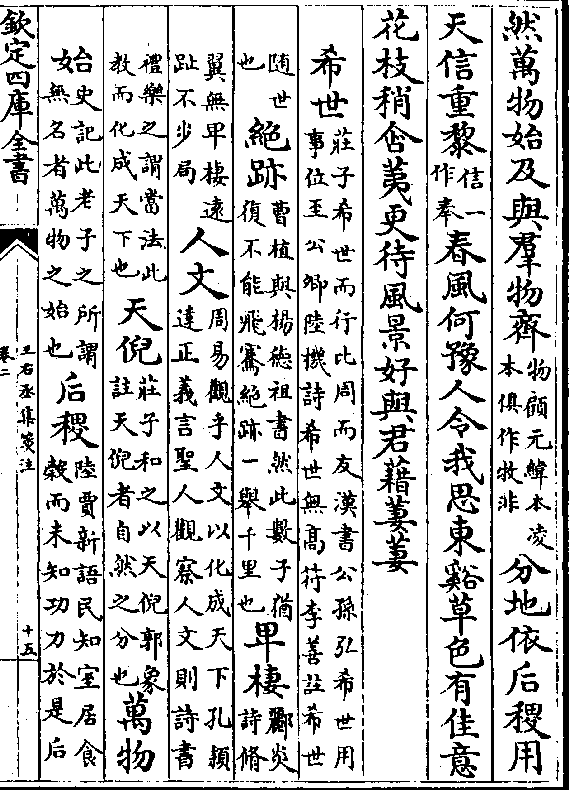 然萬物始及與羣物齊物顧元緯本凌本俱作牧非分地依后稷用
天信重黎信一作奉春風何豫人令我思東谿草色有佳意
花枝稍含荑更待風景好與君藉萋萋
希世莊子希世而行比周而友漢書公孫弘希世用事位至公卿陸機詩希世無高符李善註希世
随世也絕跡曹植與楊德祖書然此數子猶復不能飛騫絕跡一舉千里也卑棲酈炎詩脩
翼無卑棲遠趾不步局人文周易觀乎人文以化成天下孔頴達正義言聖人觀察人文則詩書
禮樂之謂當法此教而化成天下也天倪莊子和之以天倪郭象註天倪者自然之分也萬物
始史記此老子之所謂無名者萬物之始也后稷陸賈新語民知室居食穀而未知功力於是后
欽定四庫全書
王右丞集箋注
卷二
十五